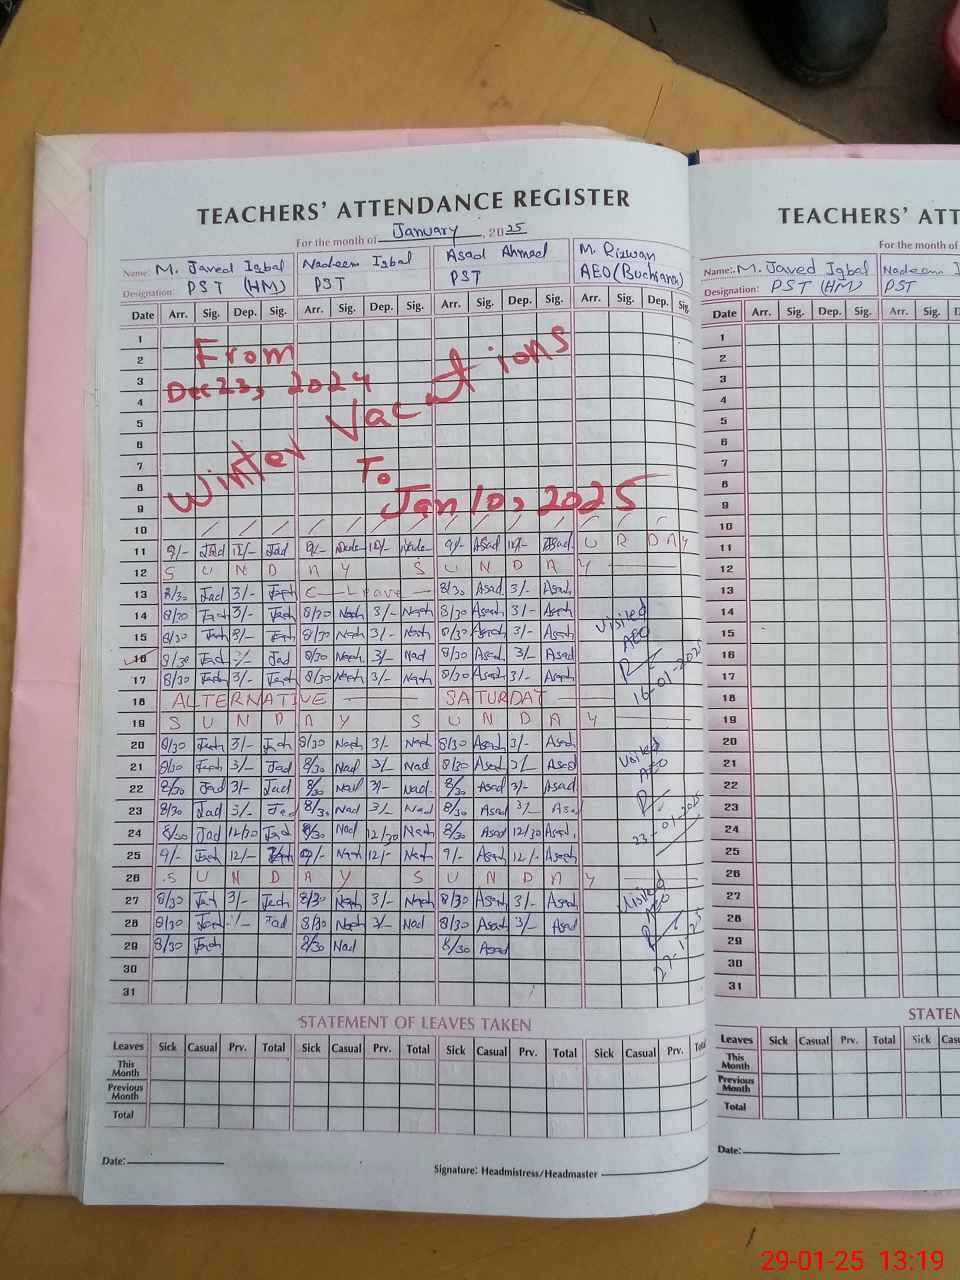 TEACHERS' ATTENDANCE REGISTER
For the month of January, 2025
Name: M. Javed Iqbal Nadeem Iqbal Asad Ahmad M. Rizwan
Designation: PST (HM) PST PST AEO (Buchiana)
Date Arr. Sig. Dep. Sig. Arr. Sig. Dep. Sig. Arr. Sig. Dep. Sig. Arr. Sig. Dep. Sig.
1
2 From
3 Dec 23, 2024
4
5 Winter Vacations
6
7 To
8
9 Jan 10, 2025
10
11 9/- Jad 12/- Jad 9/- 12/- 9/- Asad 12/- Asad U R D A Y
12 S U N D A Y S U N D A Y
13 8/30 Jad 3/- C-Leave 8/30 Asad 3/- Asad
14 8/30 3/- 8/30 3/- 8/30 Asad 3/- Asad
15 8/30 3/- 8/30 3/- 8/30 Asad 3/- Asad
16 8/30 Jad 8/30 3/- Nad 8/30 Asad 3/- Asad
17 8/30 3/- 8/30 3/- 8/30 Asad 3/- Asad
Visited
AEO
16-01-2025
18 ALTERNATIVE SATURDAY
19 S U N D A Y S U N D A Y
20 8/30 3/- 8/30 3/- 8/30 Asad 3/- Asad
21 8/30 3/- Jad 8/30 Nad 3/- Nad 8/30 Asad 3/- Asad
22 8/30 Jad 3/- Jad 8/30 Nad 3/- Nad 8/30 Asad 3/- Asad
23 8/30 Jad 3/- Jad 8/30 Nad 3/- Nad 8/30 Asad 3/- Asad
24 8/30 Jad 12/30 Jad 8/30 Nad 12/30 8/30 Asad 12/30 Asad
Visited
AEO
23-01-2025
25 9/- 12/- 9/- 12/- 9/- Asad 12/- Asad
26 S U N D A Y S U N D A Y
27 8/30 3/- 8/30 3/- 8/30 Asad 3/- Asad
28 8/30 Jad 8/30 3/- Nad 8/30 Asad 3/- Asad
29 8/30 8/30 Nad 8/30 Asad
Visited
AEO
30
31
STATEMENT OF LEAVES TAKEN
Leaves Sick Casual Prv. Total Sick Casual Prv. Total Sick Casual Prv. Total Sick Casual Prv.
This Month
Previous Month
Total
Date:
Signature: Headmistress/Headmaster
TEACHERS' ATT
For the month of
Name: M. Javed Iqbal Nadeem I
Designation: PST (HM) PST
Date Arr. Sig. Dep. Sig. Arr. Sig.
1
2
3
4
5
6
7
8
9
10
11
12
13
14
15
16
17
18
19
20
21
22
23
24
25
26
27
28
29
30
31
STATEM
Leaves Sick Casual Prv. Total Sick Cas
This Month
Previous Month
Total
Date:
29-01-25 13:19